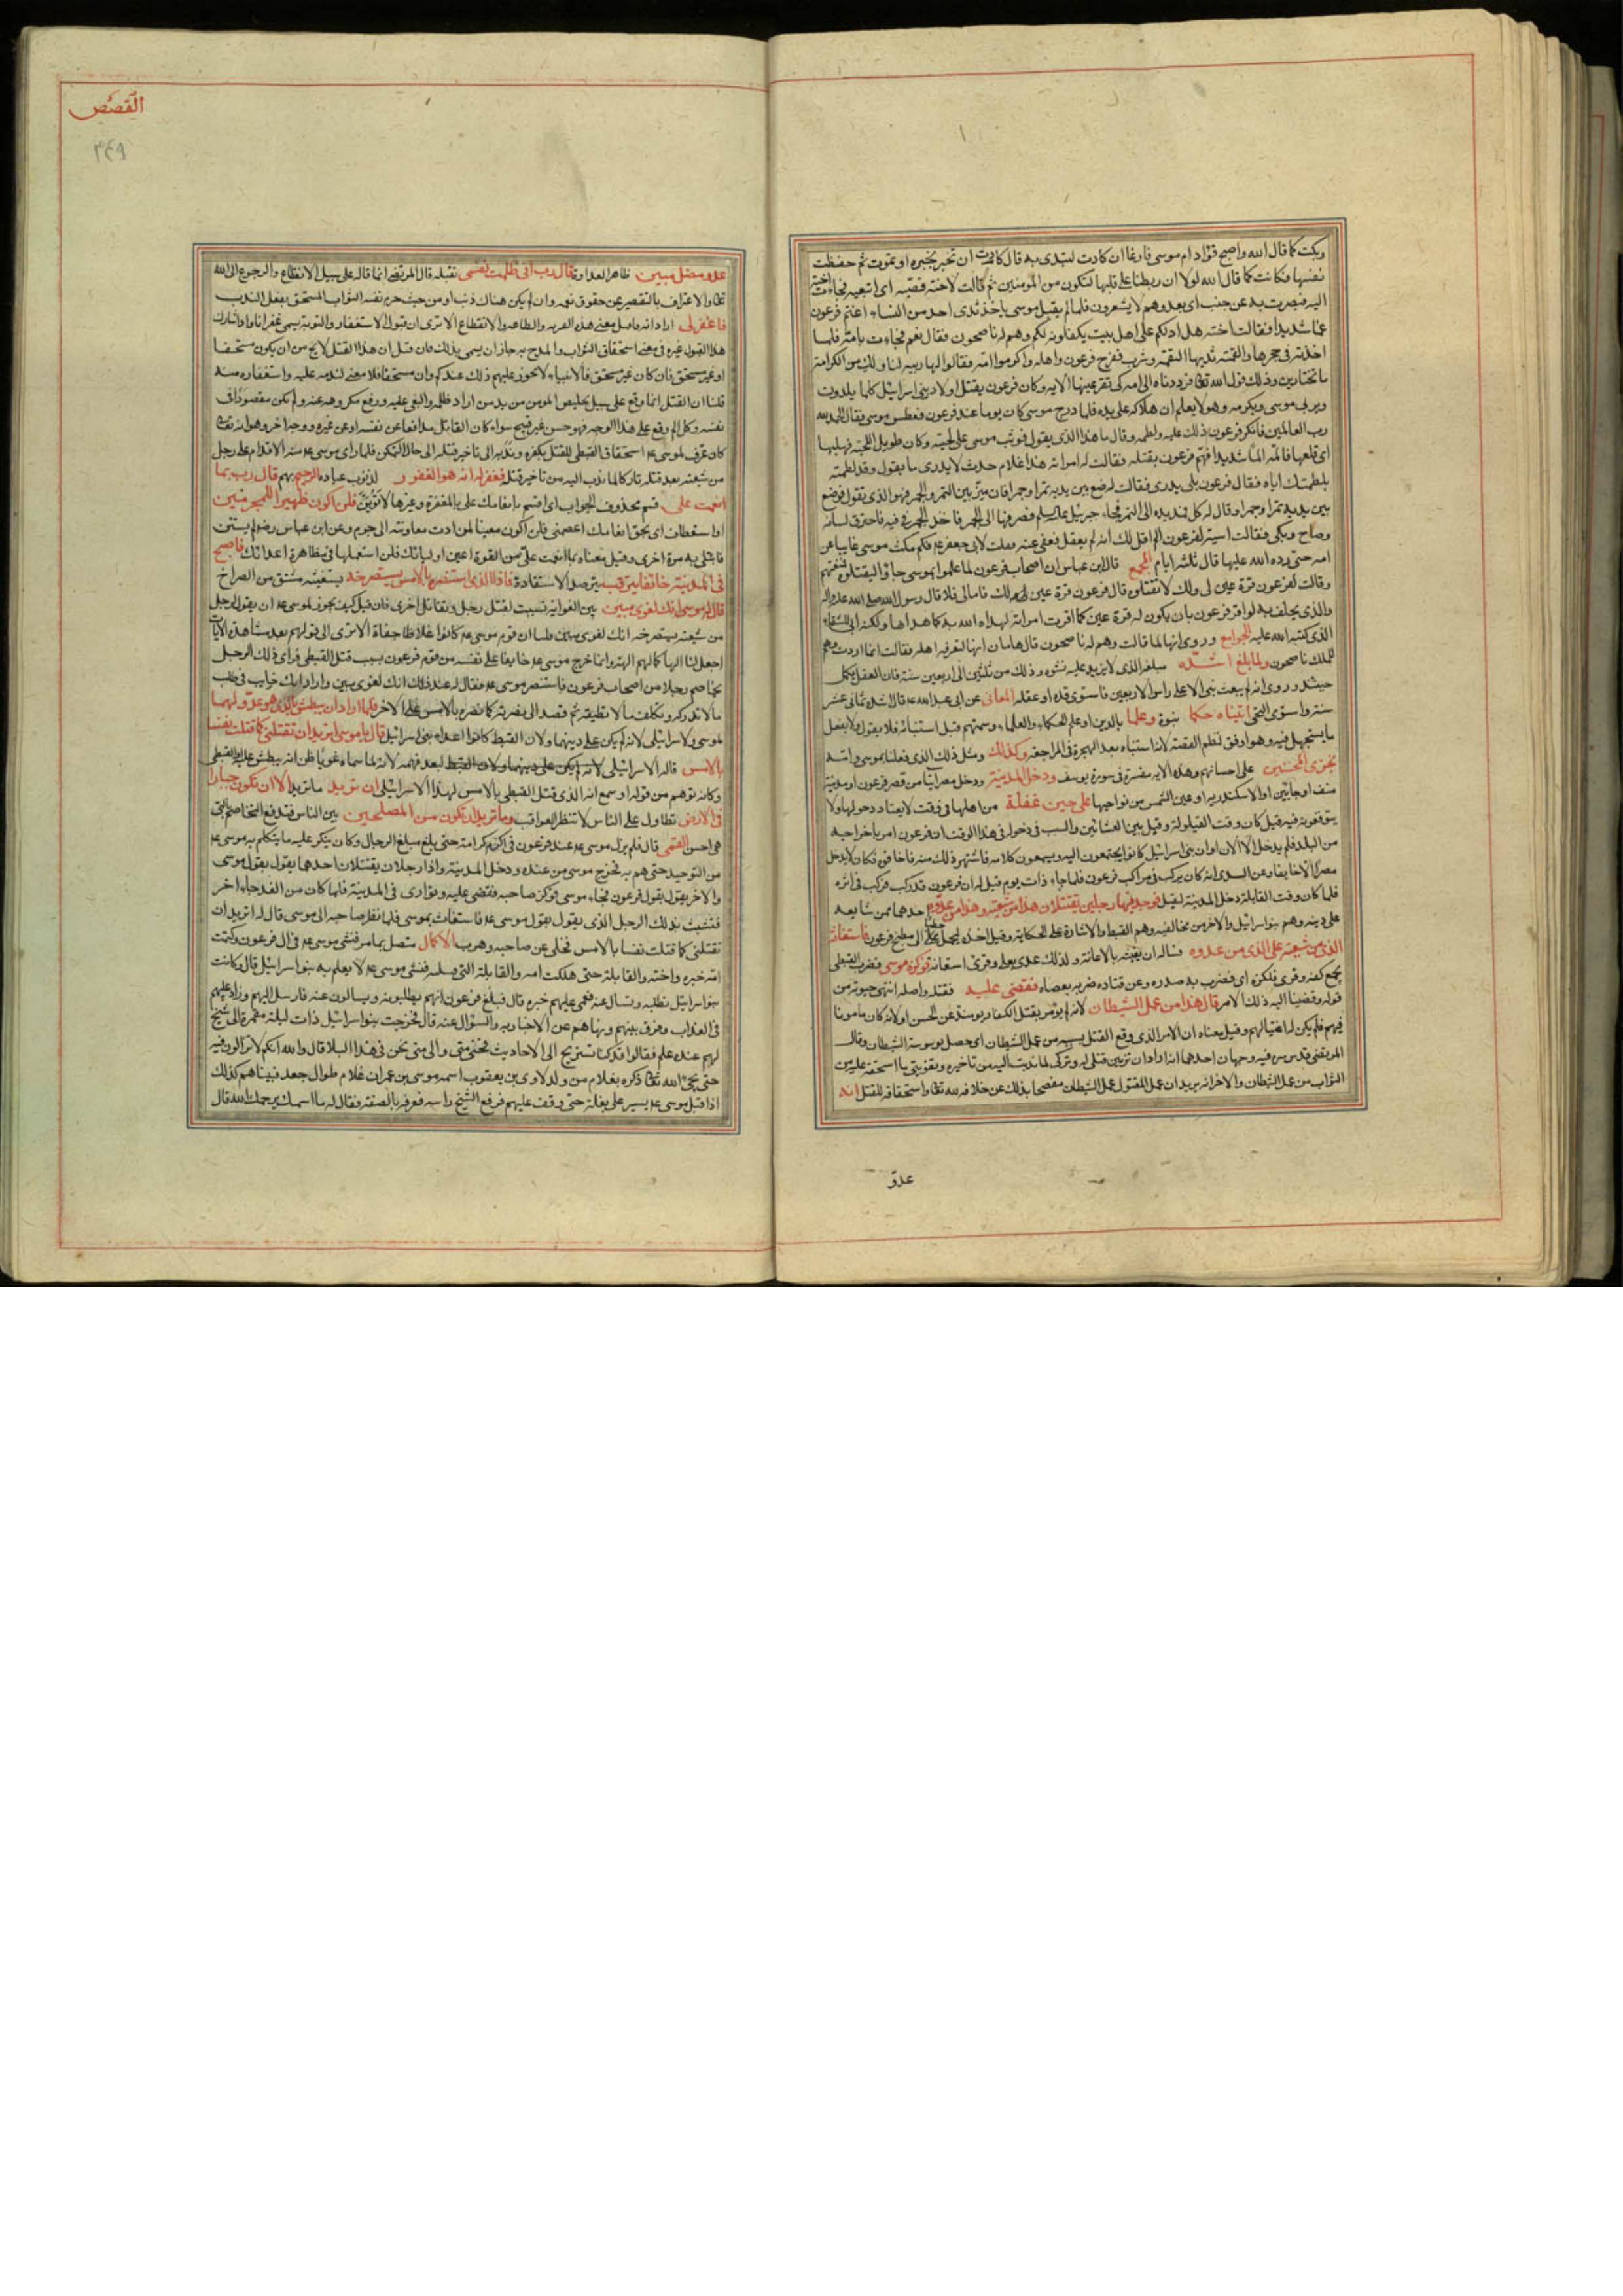 وبكت كما قال الله واصبح فؤاد ام موسى فارغا ان كادت لتبدى به قال كادت ان تخبر بخبره او تموت ثم حفظت
نفسها فكانت كما قال الله لولا ان ربطنا على قلبها لتكون من المؤمنين ثم قالت لاخته قصيه اى اتبعيه فجاءت اخته
اليه فبصرت به عن جنب اى بعد وهم لا يشعرون فلما لم يقبل موسى ياخذ ثدى احد من النساء اغتم فرعون
غما شديدا فقالت اخته هل ادلكم على اهل بيت يكفلونه لكم وهم له ناصحون فقال نعم فجاءت بامه فلما
اخذته فى حجرها والقمته ثديها التقمه وشرب ففرح فرعون واهله واكرموا امه فقالوا لها ربيه لنا ولك من الكرامة
ما تختارين وذلك قول الله تعالى فرددناه الى امه كى تقر عينها الآية وكان فرعون يقتل اولاد بنى اسرائيل كلما يلدون
ويربى موسى ويكرمه وهو لا يعلم ان هلاكه على يده فلما درج موسى كان يوما عند فرعون فعطس موسى فقال الحمد لله
رب العالمين فانكر فرعون ذلك عليه ولطمه وقال ما هذا الذى يقول فوثب موسى على لحيته وكان طويل اللحية فهلبها
اى قلعها فالمه الما شديدا فهم فرعون بقتله فقالت له امراته هذا غلام حدث لا يدرى ما يقول وقد لطمته
بلطمتك اياه فقال فرعون بلى يدرى فقالت له ضع بين يديه تمرا وجمرا فان ميز بين التمر والجمر فهو الذى تقول فوضع
بين يديه تمرا وجمرا وقال له كل فمد يده الى التمر فجاء جبرئيل عليه السلم فصرفها الى الجمر فاخذ الجمر فى فيه فاحترق لسانه
وصاح وبكى فقالت اسية لفرعون الم اقل لك انه لم يعقل فعفى عنه فقلت لابى جعفر عم فكم مكث موسى غايبا عن
امه حتى رده الله عليها قال ثلثة ايام المجمع قال ابن عباس ان اصحاب فرعون لما علموا بموسى جاؤا ليقتلوه فمنعتهم
وقالت لفرعون قرة عين لى ولك لا تقتلوه قال فرعون قرة عين لك فاما لى فلا قال رسول الله صلى الله عليه واله
والذى يحلف به لو اقر فرعون بان يكون له قرة عين كما اقرت امراته لهداه الله به كما هداها ولكنه ابى للشقاء
الذى كتبه الله عليه الجوامع وروى انها لما قالت وهم له ناصحون قال هامان انها لتعرفه اهله فقالت انما اردت وهم
للملك ناصحون ولما بلغ اشده مبلغه الذى لا يزيد عليه نشوه وذلك من ثلثين الى اربعين سنة فان العقل يكمل
حينئذ وروى انه لم يبعث نبى الا على راس الاربعين فاستوى قده او عقله المعانى عن ابى عبدالله عم قال اشده ثمانى عشر
سنة واستوى التحى اتيناه حكما نبوة وعلما بالدين او علم الحكماء والعلماء وسمتهم قبل استنبائه فلا يقول ولا يفعل
ما يستجهل فيه وهو اوفق لنظم القصة لانه استنباه بعد الهجرة فى المراجعة وكذلك ومثل ذلك الذى فعلنا بموسى وامه
نجزى المحسنين على احسانهم وهذه الآية مفسرة فى سورة يوسف ودخل المدينة ودخل مصر اتيا من قصر فرعون او مدينة
منف او حابين او الاسكندرية او عين الشمس من نواحيها على حين غفلة من اهلها فى وقت لا يعتاد دخولها ولا
يتوقعونه فيه قيل كان وقت القيلولة وقيل بين العشائين والسبب فى دخوله فى هذا الوقت ان فرعون امر باخراجه
من البلد فلم يدخل الا الان او ان بنى اسرائيل كانوا يجتمعون اليه ويسمعون كلامه فاشتهر ذلك منه فاخافوه فكان لا يدخل
مصرا الا خايفا وعن السدى انه كان يركب فى مراكب فرعون فلما جاء ذات يوم قيل له ان فرعون قد ركب فركب فى اثره
فلما كان وقت القايلة دخل المدينة ليقيل فوجد فيها رجلين يقتتلان هذا من شيعته وهذا من عدوه احدهما ممن شايعه
على دينه وهم بنو اسرائيل والاخر من مخالفيه وهم القبط والاشارة على الحكاية وقيل اخذه ليحمل حطبا الى مطبخ فرعون فاستغاثه
الذى من شيعته على الذى من عدوه فساله ان يغيثه بالاعانة ولذلك عدى بعلى وقرئ استعانه فوكزه موسى فضرب القبطى
بجمع كفه وقرئ فلكزه اى فضرب به صدره وعن قتاده ضربه بعصاه فقضى عليه فقتله واصله انهى حيوته من
قوله وقضينا اليه ذلك الامر قال هذا من عمل الشيطان لانه لم يؤمر بقتل الكفار وبوسته عن الحسن او لانه كان مامونا
فيهم فلم يكن له اغتيالهم وقيل معناه ان الامر الذى وقع القتل بسببه من عمل الشيطان اى حصل بوسوسة الشيطان وقال
المرتضى قدس سره فيه وجهان احدهما انه اراد ان تزيين قتلى له وتركى لما ندبت اليه من تاخيره وتفويتى ما استحقه عليه من
الثواب من عمل الشيطان والاخر انه يريد ان عمل المقتول عمل الشيطان مفصحا بذلك عن خلافه لله تعالى واستحقاقه للقتل انه
عدو
القصص
٣٤٩
عدو مضل مبين ظاهر العداوة قال رب انى ظلمت نفسى بقتله قال المرتضى انما قاله على سبيل الانقطاع والرجوع الى الله
تعالى والاعتراف بالتقصير عن حقوق نعمه وان لم يكن هناك ذنب او من حيث حرم نفسه الثواب المستحق بفعل الندب
فاغفر لى اراد انه فاقبل معنى هذه القربة والطاعة والانقطاع الا ترى ان قبول الاستغفار والتوبة يسمى غفرانا واذا شارك
هذا القبول غيره فى معنى استحقاق الثواب والمدح به جاز ان يسمى بذلك فان قيل ان هذا القتل لا يخ من ان يكون مستحقا
او غير مستحق فان كان غير مستحق فالانبياء لا يجوز عليهم ذلك عندكم وان مستحقا فلا معنى لندمه عليه واستغفاره منه
قلنا ان القتل انما وقع على سبيل تخليص المومن من يد من اراد ظلمه والبغى عليه ودفع مكروهه عنه ولم يكن مقصودا فى
نفسه وكل الم وقع على هذا الوجه فهو حسن غير قبيح سواء كان القاتل مدافعا عن نفسه او عن غيره ووجه اخر وهو انه تعالى
كان عرف لموسى عم استحقاق القبطى للقتل بكفره وندبه الى تاخير قتله الى حال التمكن فلما راى موسى عم منه الاقدام على رجل
من شيعته بعد قتله تاركا لما ندب اليه من تاخير قتله فغفر له انه هو الغفور لذنوب عباده الرحيم بهم قال رب بما
انعمت على قسم محذوف الجواب اى اقسم بانعامك على بالمغفرة وغيرها لاتوبن فلن اكون ظهيرا للمجرمين
او استعطاف اى بحق انعامك اعصمنى فلن اكون معينا لمن ادت معاونته الى جرم وعن ابن عباس رض لم يستثن
فابتلى به مرة اخرى وقيل معناه بما انعمت على من القوة اعين اوليائك فلن استعملها فى مظاهرة اعدائك فاصبح
فى المدينة خائفا يترقب يترصد الاستقادة فاذا الذى استنصره بالامس يستصرخه يستغيثه مشتق من الصراخ
قال له موسى انك لغوى مبين بين الغواية تسببت لقتل رجل وتقاتل اخرى فان قيل كيف يجوز لموسى عم ان يقول لرجل
من شيعته يستصرخه انك لغوى مبين قلنا ان قوم موسى عم كانوا غلاظا جفاة الا ترى الى قولهم بعد مشاهدة الايات
اجعل لنا الها كما لهم الهة وانما خرج موسى عم خايفا على نفسه من قوم فرعون بسبب قتل القبطى فراى ذلك الرجل
يخاصم رجلا من اصحاب فرعون فاستنصر موسى عم فقال له عند ذلك انك لغوى مبين واراد انك خايب فى طلب
ما لا تدركه وتكلف ما لا تطيقه ثم قصد الى نصرته كما نصره بالامس على الاخر فلما اراد ان يبطش بالذى هو عدو لهما
لموسى ولاسرائيلى لانه لم يكن على دينهما ولان القبط كانوا اعداء بنى اسرائيل قال يا موسى اتريد ان تقتلنى كما قتلت نفسا
بالامس قاله الاسرائيلى لانه لم يكن على دينهما ولان القبط لبعد فهمه لانه لما سماه غويا ظن انه يبطش عليه او القبطى
وكانه توهم من قوله او سمع انه الذى قتل القبطى بالامس لهذا الاسرائيلى ان تريد ما تريد الا ان تكون جبارا
فى الارض تطاول على الناس لا تنظر العواقب وما تريد ان تكون من المصلحين بين الناس فتدفع التخاصم بالتى
هى احسن القمى قال فلم يزل موسى عم عند فرعون فى اكرم كرامة حتى بلغ مبلغ الرجال وكان ينكر عليه ما يتكلم به موسى عم
من التوحيد حتى هم به فخرج موسى من عنده ودخل المدينة واذا رجلان يقتتلان احدهما يقول بقول موسى
والاخر يقول بقول فرعون فجاء موسى فوكز صاحبه فقضى عليه وتوارى فى المدينة فلما كان من الغد جاء اخر
فتشبث بذلك الرجل الذى يقول بقول موسى عم فاستغاث بموسى فلما نظر صاحبه الى موسى قال له اتريد ان
تقتلنى كما قتلت نفسا بالامس فخلى عن صاحبه وهرب الاكمال متصل بما مر فنشى موسى عم فى ال فرعون وكتمت
امه خبره واخته والقابلة حتى هلكت امه والقابلة التى قبلته فنشى موسى عم لا يعلم به بنو اسرائيل قال وكانت
بنو اسرائيل تطلبه وتسال عنه فعمى عليهم خبره قال فبلغ فرعون انهم يطلبونه ويسالون عنه فارسل اليهم وزاد عليهم
فى العذاب وفرق بينهم ونهاهم عن الاخبار به والسؤال عنه قال فخرجت بنو اسرائيل ذات ليلة مقمرة الى شيخ
لهم عنده علم فقالوا قد كنا نستريح الى الاحاديث فحتى متى والى متى نحن فى هذا البلاء قال والله انكم لا تزالون فيه
حتى يجئ الله تعالى ذكره بغلام من ولد لاوى بن يعقوب اسمه موسى بن عمران غلام طوال جعد فبينا هم كذلك
اذ اقبل موسى عم يسير على بغلة حتى وقف عليهم فرفع الشيخ راسه فعرفه بالصفة فقال له ما اسمك يرحمك الله قال